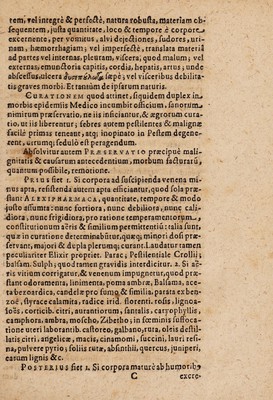 tem, vel integrè & perfectè, natura robusta, materiam ob-
sequentem, justa quantitate, loco & tempore è corpore
excernente, per vomitus, alvi dejectiones, sudores, uri-
nam, hæmorrhagiam; vel imperfectè, translata materiâ
ad partes vel internas, pleuram, viscera, quod malum; vel
externas, emunctoria capitis, cordis, hepatis, artus; unde
abscessus, ulcera sæpè; vel visceribus debilita-
tis graves morbi. Et tantùm de ipsarum naturis.
CURATIONEM quod attinet, siquidem duplex in
morbis epidemiis Medico incumbit officium, sanorum
nimirum præservatio, ne iis inficiantur, & ægrorum cura-
tio, ut iis liberentur; febres autem pestilentes & malignæ
facilè primas teneant, atq; inopinato in Pestem degene-
rent, utrumq; sedulò est peragendum.
Absolvitur autem PRÆSERVATIO præcipuè mali-
gnitatis & causarum antecedentium, morbum facturarũ,
quantum possibile, remotione.
PRIUS fiet 1. Si corpora ad suscipienda venena mi-
nus apta, resistenda autem apta efficiantur, quod sola præ-
stant ALEXIPHARMACA; quantitate, tempore & modo
justo assumta: nunc fortiora, nunc debiliora, nunc cali-
diora, nunc frigidiora, pro ratione temperamentorum,
constitutionum aëris & similium permittentiũ: talia sunt,
quæ in curatione determinabũtur, quæq; minori dosi præ-
servant, majori & dupla plerumq; curant. Laudatur tamen
peculiariter Elixir propriet. Parac; Pestilentiale Crollii;
balsam. Sulph; quod tamen gravidis interdicitur. 2. Si aë-
ris vitium corrigatur, & venenum impugnetur, quod præ-
stant odoramenta, linimenta, poma ambræ, Balsama, ace-
ta bezoardica, candelæ pro fumo, & similia. parata ex ben-
zoë, styrace calamita, radice irid. florenti. rosis, ligno-
aloës, corticib. citri, aurantiorum, santalis, caryophyllis,
camphora, ambra, moscho, Zibetho, in fœminis suffoca-
tione uteri laborantib. castoreo, galbano, ruta, oleis destil-
latis citri, angelicæ, macis, cinamomi, succini, lauri resi-
na, pulvere pyrio; foliis rutæ, absinthii, quercus, juniperi,
easum lignis &c.
POSTERIUS fiet 1. Si corpora maturè ab humorib9
C
excre-